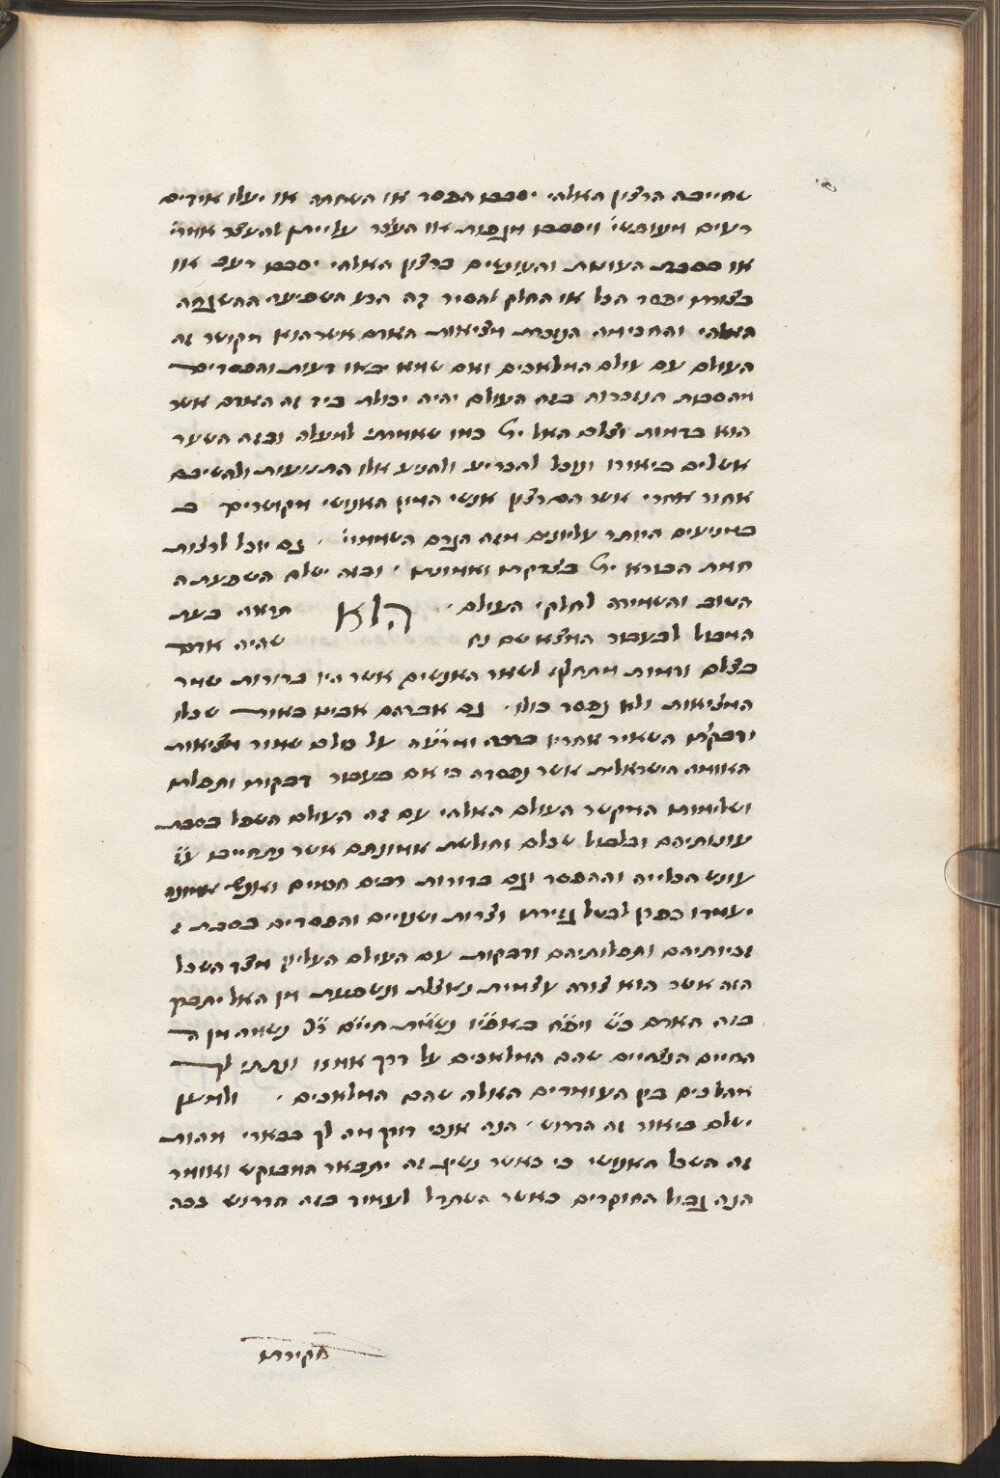 שחייבה הרצון האלהי יסבבו הפסד או השחתה או יעלו אידים
רעים מעופשי׳ ויסבבו מגפות או העדר עליית להעצר
או בסבת העונות והעונשים ברצון האלהי יסבבו רעב או
בצורת יפסד הכל או החלק להסיר זה הרע השפיעה ההשגחה
האלהי והחכימה הגוברת מציאות האדם אשר הוא מקושר זה
העולם עם עולם המלאכים ואם שמא יבאו רעות והפסדים
מהסבות הנזכרות בזה העולם יהיה יכולת ביד זה האדם אשר
הוא בדמות וצלם האל ית׳ כמו שאמרתי למעלה ובזה השער
אשלים ביאורו ונוכל להכריע ולהניע אלו התנועות ולהשיבם
אחור אחרי אשר הם ברצון אנשי המין האנושי מקושרים ב
במניעים היותר עליונים מזה הגרם השמימיי׳ . גם יוכל לרצות
חמת הבורא ית׳ בצדקתו ואמונתו . ובזה ישלם השפעת ה
הטוב והשמירה לחלקי העולם . הלא תראה בעת
המבול לבעבור המצא שם נח שהיה אדם
בצלם ודמות מתחלף לשאר האנשים אשר היו בדורות שמר
המציאות ולא נפסד כולו . גם אברהם אבינו באור שכלו
ודבקותו השאיר אחריו ברכה ומרע״ה על כולם שמור מציאות
האומה הישראלית אשר נפסדה כי אם בעבור דבקותו ותפלתו
ושלימותו המקשר העולם האלהי עם זה העולם השפל בסבת
עונותיהם ובלבול שכלם וחולשת אמונתם אשר נתחייבו ע״ז
עונש הכלייה וההפסד וגם בדורות רבים חסידים ואנשי אמונה
יעמדו בפרץ לבטל גזירות וצרות ושנויים והפסדים בסבת ז
זכיותיהם ותפלותיהם ודבקותם עם העולם העליון מצד השכל
הזה אשר הוא צורה עצמית נאצלת ונשפעת מן האל יתברך
בזה האדם כש׳ ויפ״ח באפ״יו נש״מת חיי״ם ר״ל נשמה מן ה
החיים הנצחיים שהם המלאכים על דרך אמרו ונתתי לך
מהלכים בין העומדים האלה שהם המלאכים . ולמען
ישלם ביאור זה הדרוש . הנה אנכי דורך מה לך בבארי מהות
זה השכל האנושי כי כאשר נשיג זה יתבאר המבוקש ואומר
הנה גבול החוקרים כאשר השתדל לעמוד בזה הדרוש בכה
חקירתו